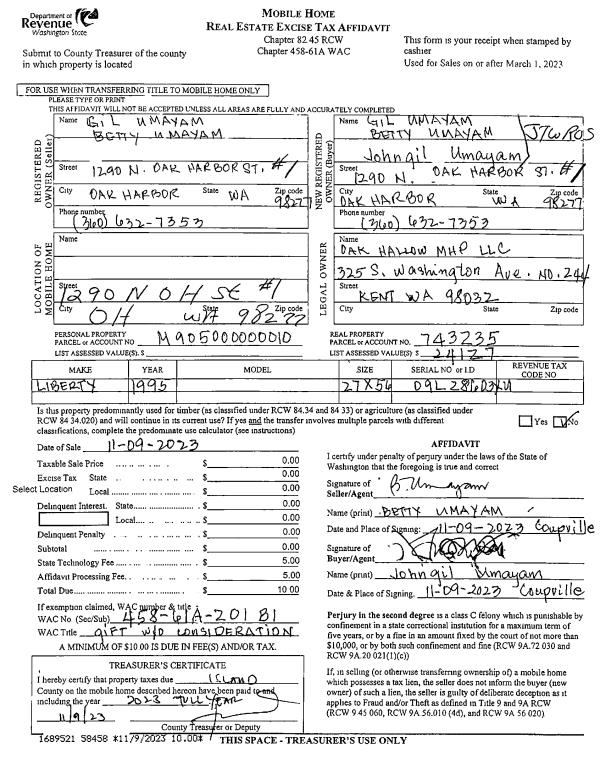 Department of
Revenue
Washington State
MOBILE HOME
REAL ESTATE EXCISE TAX AFFIDAVIT
Chapter 82 45 RCW
Chapter 458-61A WAC
Submit to County Treasurer of the county
in which property is located
This form is your receipt when stamped by
cashier
Used for Sales on or after March 1, 2023
FOR USE WHEN TRANSFERRING TITLE TO MOBILE HOME ONLY
PLEASE TYPE OR PRINT
THIS AFFIDAVIT WILL NOT BE ACCEPTED UNLESS ALL AREAS ARE FULLY AND ACCURATELY COMPLETED
REGISTERED
OWNER (Seller)
Name GIL UMAYAM
BETTY UMAYAM
Street 1290 N. OAK HARBOR ST. #1
City OAK HARBOR State WA Zip code 98277
Phone number (360) 632-7353
NEW REGISTERED
OWNER (Buyer)
Name GIL UMAYAM
BETTY UMAYAM JTWROS
Johngil Umayam
Street 1290 N. OAK HARBOR ST. #1
City OAK HARBOR State WA Zip code 98277
Phone number (360) 632-7353
LOCATION OF
MOBILE HOME
Name
Street 1290 N OH St #1
City OH State WA Zip code 98277
LEGAL OWNER
Name OAK HALLOW MHP LLC
325 S. Washington Ave. NO. 244
Street KENT WA 98032
City State Zip code
PERSONAL PROPERTY
PARCEL or ACCOUNT NO. M905000000010
LIST ASSESSED VALUE(S). $
REAL PROPERTY
PARCEL or ACCOUNT NO. 743235
LIST ASSESSED VALUE(S) $ 24127
MAKE YEAR MODEL SIZE SERIAL NO or I.D REVENUE TAX CODE NO
LIBERTY 1995 27X56 09L28603XU
Is this property predominantly used for timber (as classified under RCW 84.34 and 84 33) or agriculture (as classified under
RCW 84 34.020) and will continue in its current use? If yes and the transfer involves multiple parcels with different
classifications, complete the predominate use calculator (see instructions)
Yes No
Date of Sale 11-09-2023
Taxable Sale Price $ 0.00
Excise Tax State $ 0.00
Select Location Local $ 0.00
Delinquent Interest. State $ 0.00
Local $ 0.00
Delinquent Penalty $ 0.00
Subtotal $ 0.00
State Technology Fee $ 5.00
Affidavit Processing Fee $ 5.00
Total Due $ 10 00
If exemption claimed, WAC number & title
WAC No (Sec/Sub) 458-61A-201 B1
WAC Title GIFT W/O CONSIDERATION
A MINIMUM OF $10.00 IS DUE IN FEE(S) AND/OR TAX.
TREASURER'S CERTIFICATE
I hereby certify that property taxes due ISLAND
County on the mobile home described hereon have been paid to and
including the year 2023 FULL YEAR
11/9/23
County Treasurer or Deputy
AFFIDAVIT
I certify under penalty of perjury under the laws of the State of
Washington that the foregoing is true and correct
Signature of
Seller/Agent B. Umayam
Name (print) BETTY UMAYAM
Date and Place of Signing: 11-09-2023 Coupville
Signature of
Buyer/Agent
Name (print) Johngil Umayam
Date & Place of Signing. 11-09-2023 Coupville
Perjury in the second degree is a class C felony which is punishable by
confinement in a state correctional institution for a maximum term of
five years, or by a fine in an amount fixed by the court of not more than
$10,000, or by both such confinement and fine (RCW 9A.72 030 and
RCW 9A.20 021(1)(c))
If, in selling (or otherwise transferring ownership of) a mobile home
which possesses a tax lien, the seller does not inform the buyer (new
owner) of such lien, the seller is guilty of deliberate deception as it
applies to Fraud and/or Theft as defined in Title 9 and 9A RCW
(RCW 9.45 060, RCW 9A 56.010 (4d), and RCW 9A 56 020)
1689521 58458 *11/9/2023 10.00*
THIS SPACE - TREASURER'S USE ONLY